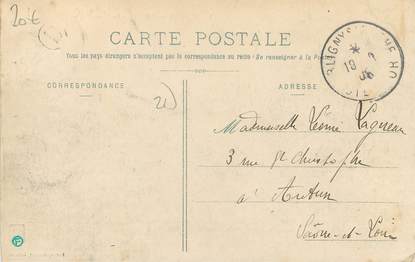 20€
CARTE POSTALE
Tous les pays étrangers n'acceptent pas la correspondance au recto (Se renseigner à la Poste)
CORRESPONDANCE
ADRESSE
BLIGNY
19
21
Mademoiselle
3 rue St Christophe
à Autun
Saône-et-Loire